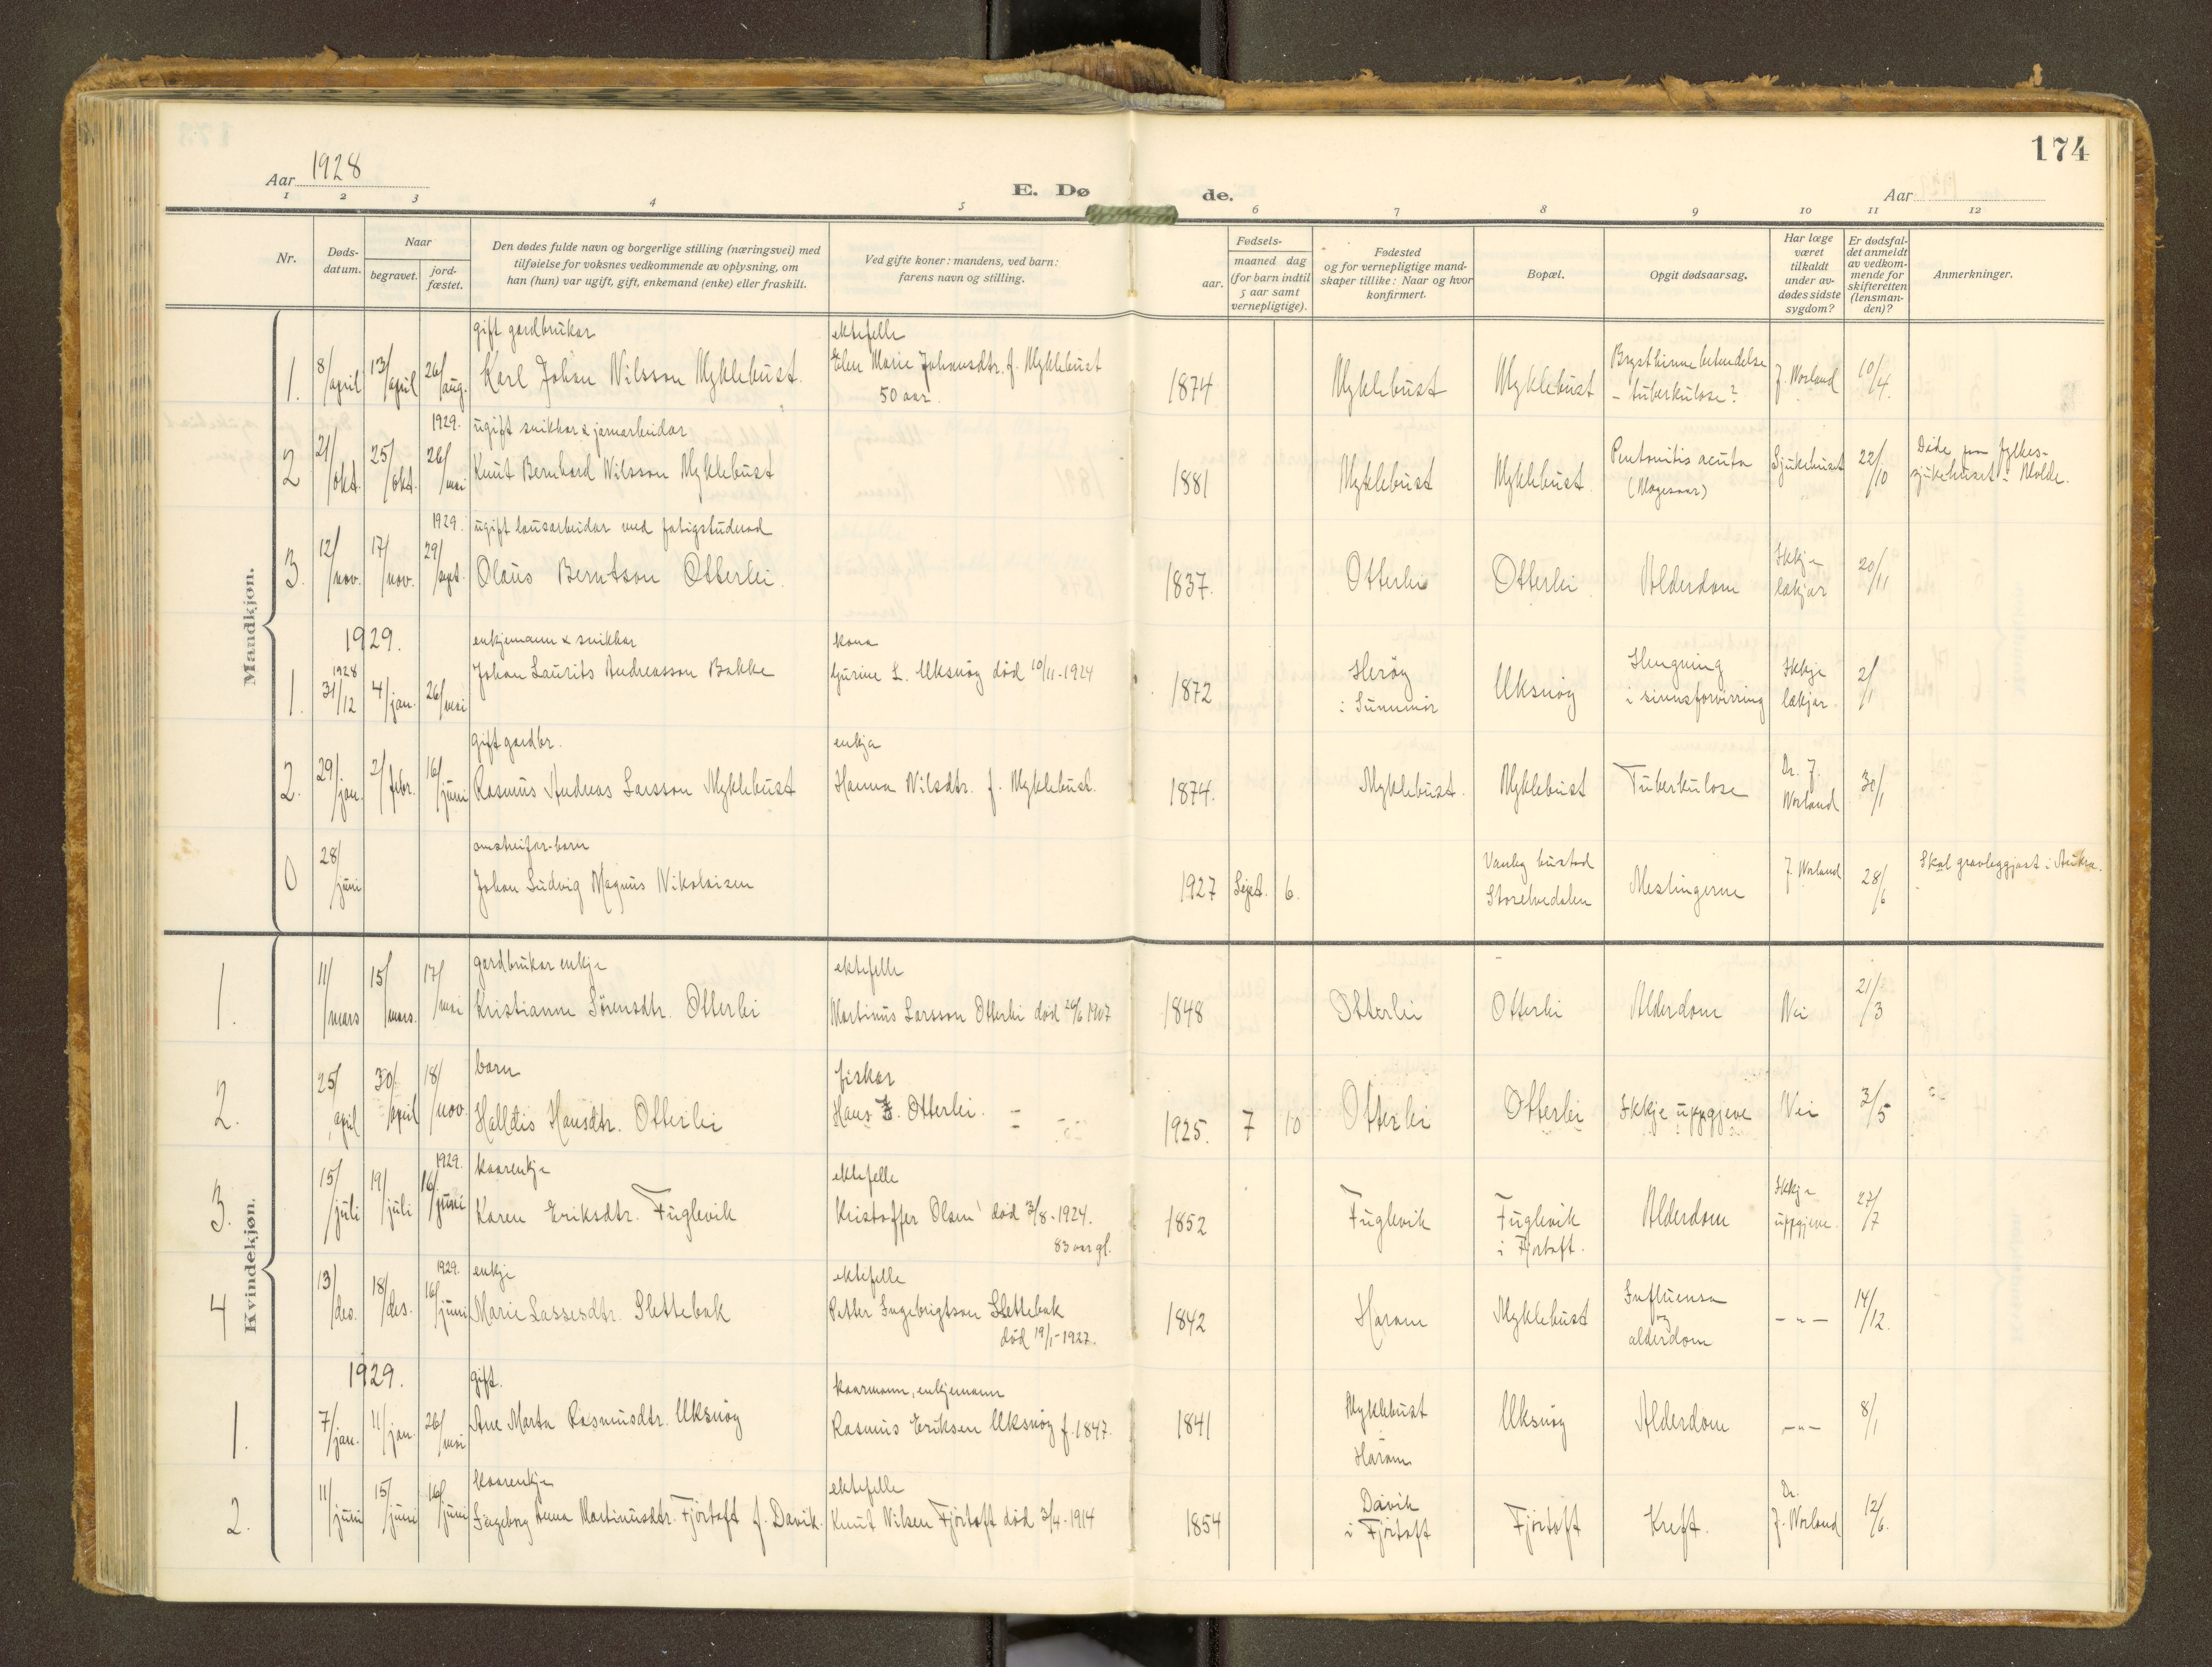 174
Aar 1928
E. Døde.
Aar
1 2 3 4 5 6 7 8 9 10 11 12
Nr.
Døds-
datum.
Naar
begravet.
jord-
fæstet.
Den dødes fulde navn og borgerlige stilling (næringsvei) med
tilføielse for voksnes vedkommende av oplysning, om
han (hun) var ugift, gift, enkemand (enke) eller fraskilt.
Ved gifte koner: mandens, ved barn:
farens navn og stilling.
Fødsels-
aar.
maaned dag
(for barn indtil
5 aar samt
vernepligtige).
Fødested
og for vernepligtige mand-
skaper tillike: Naar og hvor
konfirmert.
Bopæl.
Opgit dødsaarsag.
Har læge
været
tilkaldt
under av-
dødes sidste
sygdom?
Er dødsfal-
det anmeldt
av vedkom-
mende for
skifteretten
(lensman-
den)?
Anmerkninger.
Mandkjøn.
gift gardbrukar ektefelle
1. 8/april 13/april 26/aug. Karl Johan Nilsson Myklebust. Elen Marie Johansdtr. f. Myklebust 1874 Myklebust Myklebust Brysthinnebetendelse J. Norland 10/4.
50 aar. - tuberkulose?
1929. ugift snikkar & jarnarbeidar
2 21/okt. 25/okt. 26/mai Knut Bernhard Nilsson Myklebust 1881 Myklebust Myklebust Peritonitis acuta Sjukehuset 22/10 Døde paa fylkes-
(Magesaar) sjukehuset i Molde.
1929. ugift lausarbeidar med fatigstudnad
3. 12/nov. 17/nov. 29/sept. Olaus Berntson Otterlei. 1837. Otterlei Otterlei Alderdom Ikkje 20/11
lækjar
1929. enkjemann & snikkar kona
1. 1928 31/12 4/jan. 26/mai Johan Laurits Andreasson Bakke Gurine L. Uksnøy død 10/11-1924 1872 Herøy Uksnøy Hengning Ikkje 2/1
i Sunnmør i sinnsforvirring lækjar.
gift gardbr. enkja
2. 29/jan. 2/febr. 16/juni Rasmus Andreas Larsson Myklebust Hanna Nilsdtr. f. Myklebust. 1874. Myklebust. Myklebust Tuberkulose Dr. J. 30/1
Norland
omstreifar-barn
0 28/juni Johan Ludvig Magnus Nikolaisen 1927 Sept. 6. Vanleg bustad Meslingerne J. Norland 28/6 Skal gravleggjast i Aukra.
Storelvedalen
Kvindekjøn.
gardbrukar enkje ektefelle
1. 11/mars 15/mars. 17/mai Kristianne Sørensdtr. Otterlei Martinus Larsson Otterlei død 24/6 1907 1848 Otterlei Otterlei Alderdom Nei 21/3
barn fiskar
2. 25/april 30/april 18/nov. Halldis Hansdtr. Otterlei Hans J. Otterlei. 1925. 7 10 Otterlei Otterlei Ikkje uppgjeve Nei 3/5
1929. kaarenkje ektefelle
3. 15/juli 19/juli 16/juni Karen Eriksdtr. Fuglevik Kristoffer Olsen død 3/8-1924. 1852 Fuglevik Fuglevik Alderdom Ikkje 27/7
83 aar gl. i Fjørtoft. uppgjeve.
1929. enkje ektefelle
4 13/des. 18/des. 16/juni Marie Lassesdtr. Slettebak Petter Ingebrigtson Slettebak 1842 Haram Myklebust Influensa - " - 14/12.
død 19/1-1927. og
alderdom
1929. gift. kaarmann, enkjemann
1. 7/jan. 11/jan. 26/mai Ane Marta Rasmusdtr. Uksnøy Rasmus Eriksen Uksnøy f. 1847. 1841 Myklebust Uksnøy Alderdom - " - 8/1
Haram
kaarenkje ektefelle
2. 11/juni 15/juni 16/juni Ingeborg Anna Martinusdtr. Fjørtoft f. Davik. Knut Nilsen Fjørtoft død 3/4-1914 1854 Davik Fjørtoft Kreft. Dr. 12/6.
i Fjørtoft J. Norland